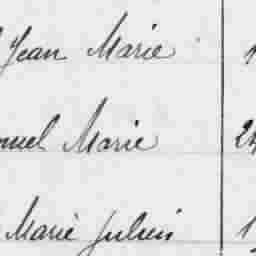 Jean Marie
nuel Marie 24
Marie Julien